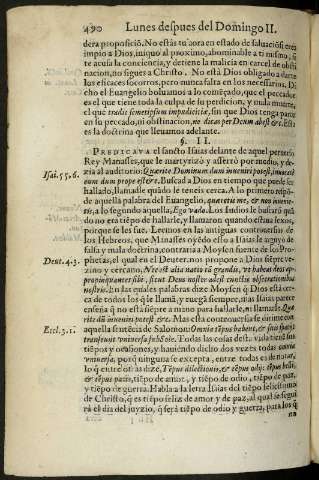 490 Lunes despues del Domingo II.
dera proposiciõ. No estàs tu aora en estado de saluaciõ: eres
impio a Dios, iniquo al proximo, abominable a ti mismo, q̃
te acusa la conciencia, y detiene la malicia en carcel de obsti
nacion, no sigues a Christo. No està Dios obligado a darte
los eficaces socorros, pero nunca falta en los necessarios. Di
cho el Euangelio boluamos a lo começado, que el peccador
es el que tiene toda la culpa de su perdicion, y mula muerte,
el que tradit semetipsum impudicitiæ, sin que Dios tenga parte
en su pecado, ni obstinacion, ne dicas per Deum abest &c. Esta
es la doctrina que lleuamos adelante.
§. II.
PREDICAVA el sancto Isaias delante de aquel peruerso
Rey Manasses, que le martyrizò y asserrò por medio, y de-
Isai. 55. 6. zia al auditorio: Quærite Dominum dum inueniri potest, inuocate
eum dum prope est &c. Buscad a Dios en tiempo que puede ser
hallado, llamadle quãdo le teneis cerca. A lo primero respõ-
de aquella palabra del Euangelio, quæretis me, & non inuenie-
tis, a lo segundo aquella, Ego vado. Los Indios le buscarã quã
do no era tiẽpo de hallarle, y llamaron quando estaua lexos,
porque se les fue. Leemos en las antiguas controuersias de
los Hebreos, que Manasses oyẽdo esto a Isaias le arguyò de
falsa y mala doctrina, contraria a Moysen fuente de los Pro-
Deut. 4. 3. phetas, el qual en el Deuter. nos propone a Dios siẽpre ve-
zino y cercano, Nec est alia natio tã grandis, vt habeat deos ap-
propinquantes sibi, sicut Deus noster adest cunctis obsecrationibus
nostris. En las quales palabras dize Moysen q̃ Dios està cer-
ca de todos los q̃ le llamã, y ruegã siempre, mas Isaias parece
enseña q̃ no està siẽpre a mano para hallarle, ni llamarle. Quæ
rite dũ inueniri potest &c. Mas esta controuersia se dirime con
Eccl. 3. 1. aquella sentẽcia de Salomon: Omnia tẽpus habent, & suis spatijs
transeunt vniuersa sub Sole. Todas las cosas desta vida tienẽ sus
tiẽpos y ocasiones, y hauiendo dicho dos vezes todas omnia
vniuersa, porq̃ ninguna se excepta, entre todas es de notar,
lo q̃ entre otras dize, Tẽpus dilectionis, & tẽpus odij: tẽpus belli,
& tẽpus pacis, tiẽpo de amor, y tiẽpo de odio, tiẽpo de paz,
y tiẽpo de guerra. Habla a la letra Isaias del tiẽpo felicissimo
de Christo, q̃ es tiẽpo feliz de amor y de paz, al qual se segui
rà el dia del juyzio, q̃ serà tiẽpo de odio y guerra, para los q̃
no